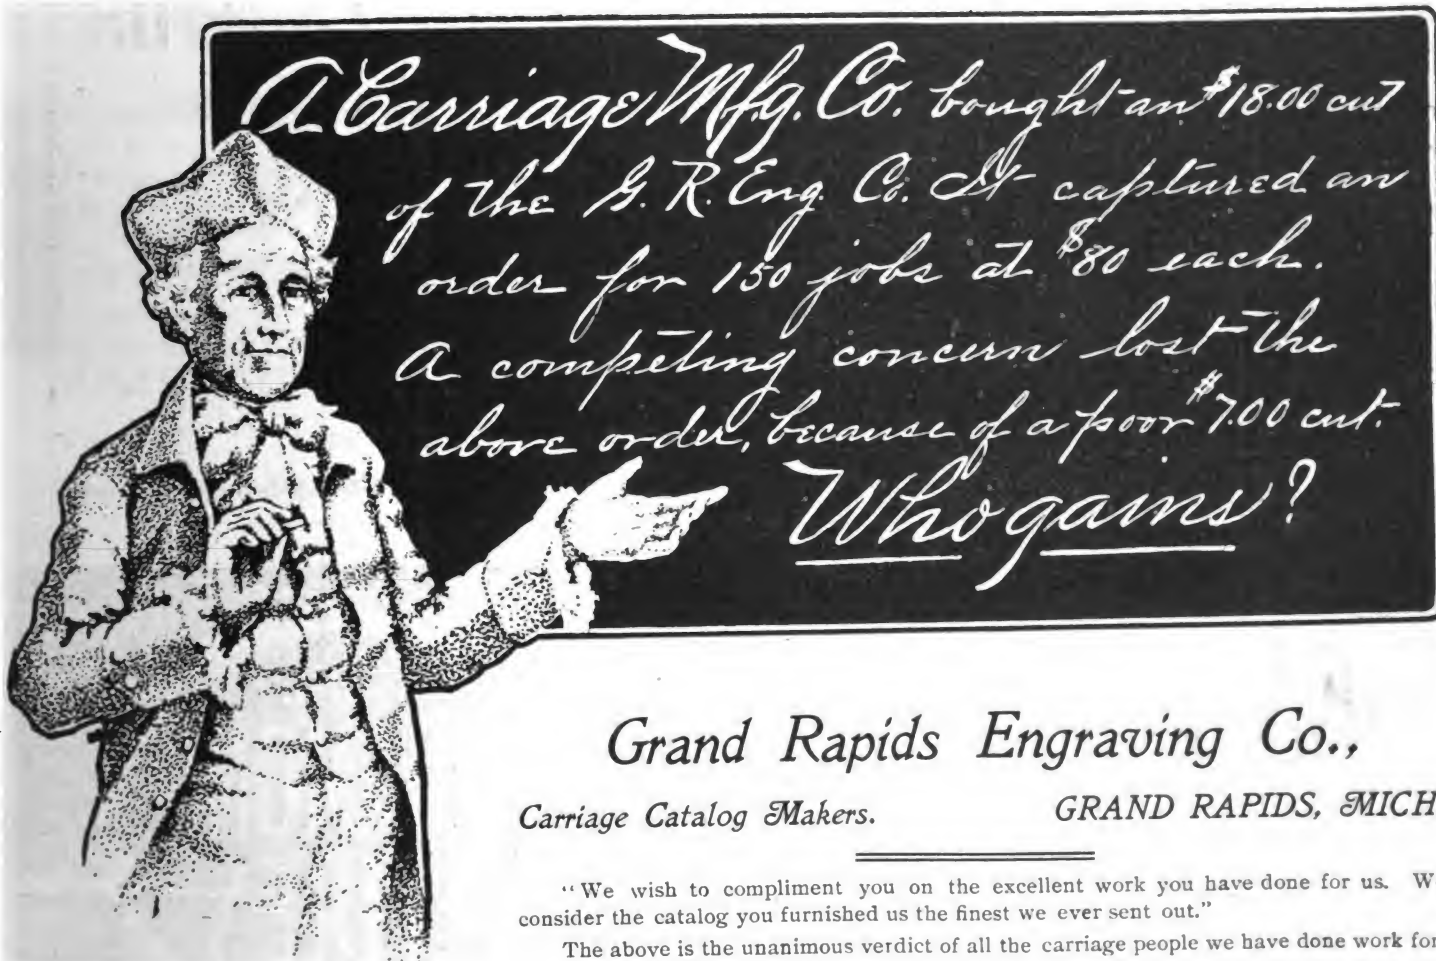 A Carriage Mfg. Co. bought an $18.00 cut
of the G. R. Eng. Co. It captured an
order for 150 jobs at $80 each.
A competing concern lost the
above order, because of a poor $7.00 cut.
Who gains?
Grand Rapids Engraving Co.,
Carriage Catalog Makers. GRAND RAPIDS, MICH
"We wish to compliment you on the excellent work you have done for us. W
consider the catalog you furnished us the finest we ever sent out."
The above is the unanimous verdict of all the carriage people we have done work for